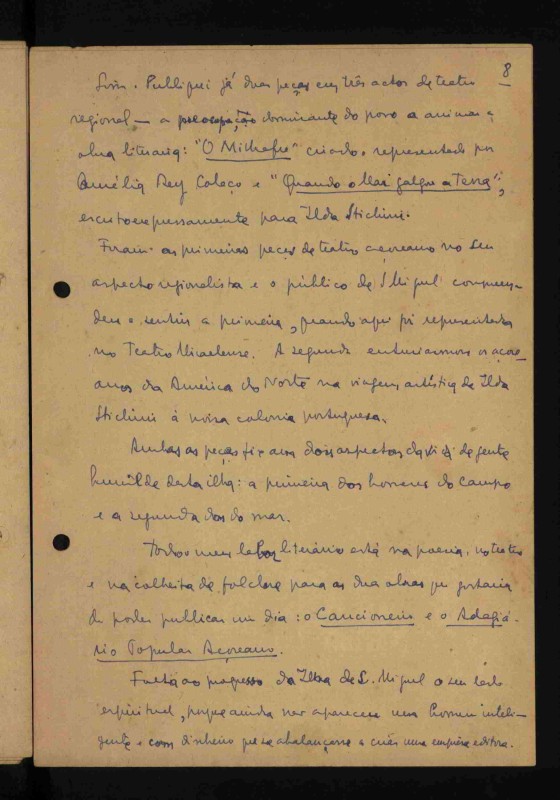 8
Sim. Publiquei já duas peças em três actos de teatro
regional — a preocupação dominante do povo a animar a
alma literaria: "O Michafre" criado e representado por
Amélia Rey Colaço e "Quando o Mar galgou a Terra",
escrito expressamente para Ilda Stichini.
Foram as primeiras peças de teatro açoreano no seu
aspecto regionalista e o público de S. Miguel compreen-
deu e sentiu a primeira, quando aqui foi representada
no Teatro Micaelense. A segunda entusiasmou os açore-
anos da América do Norte na viagem artística de Ilda
Stichini á nossa colonia portuguesa.
Ambas as peças fixam dois aspectos da vida da gente
humilde desta ilha: a primeira dos homens do campo
e a segunda dos do mar.
Todo o meu labor literário está na poesia, no teatro
e na colheita de folclore para as duas obras que gostaria
de poder publicar um dia: o Cancioneiro e o Adagiá-
rio Popular Açoreano.
Falta ao progresso da Ilha de S. Miguel o seu lado
espiritual, porque ainda não apareceu um homem inteli-
gente e com dinheiro que se abalançasse a criar uma empresa editora.